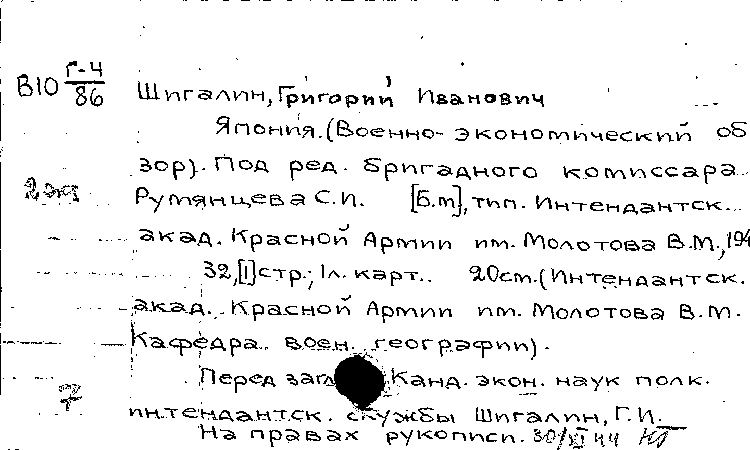 В10 Г-4/86
Шигалин, Григорий Иванович
Япония. (Военно-экономический об
зор). Под ред. бригадного комиссара
2 экз
Румянцева С.И. [Б.м], тип. Интендантск.
акад. Красной Армии им. Молотова В.М., 194
32,[1]стр.; 1л. карт. 20см. (Интендантск.
акад. Красной Армии им. Молотова В.М.
Кафедра воен. географии).
Перед загл Канд. экон. наук полк.
7
интендантск. службы Шигалин, Г.И.
На правах рукописи. 30/XI 44